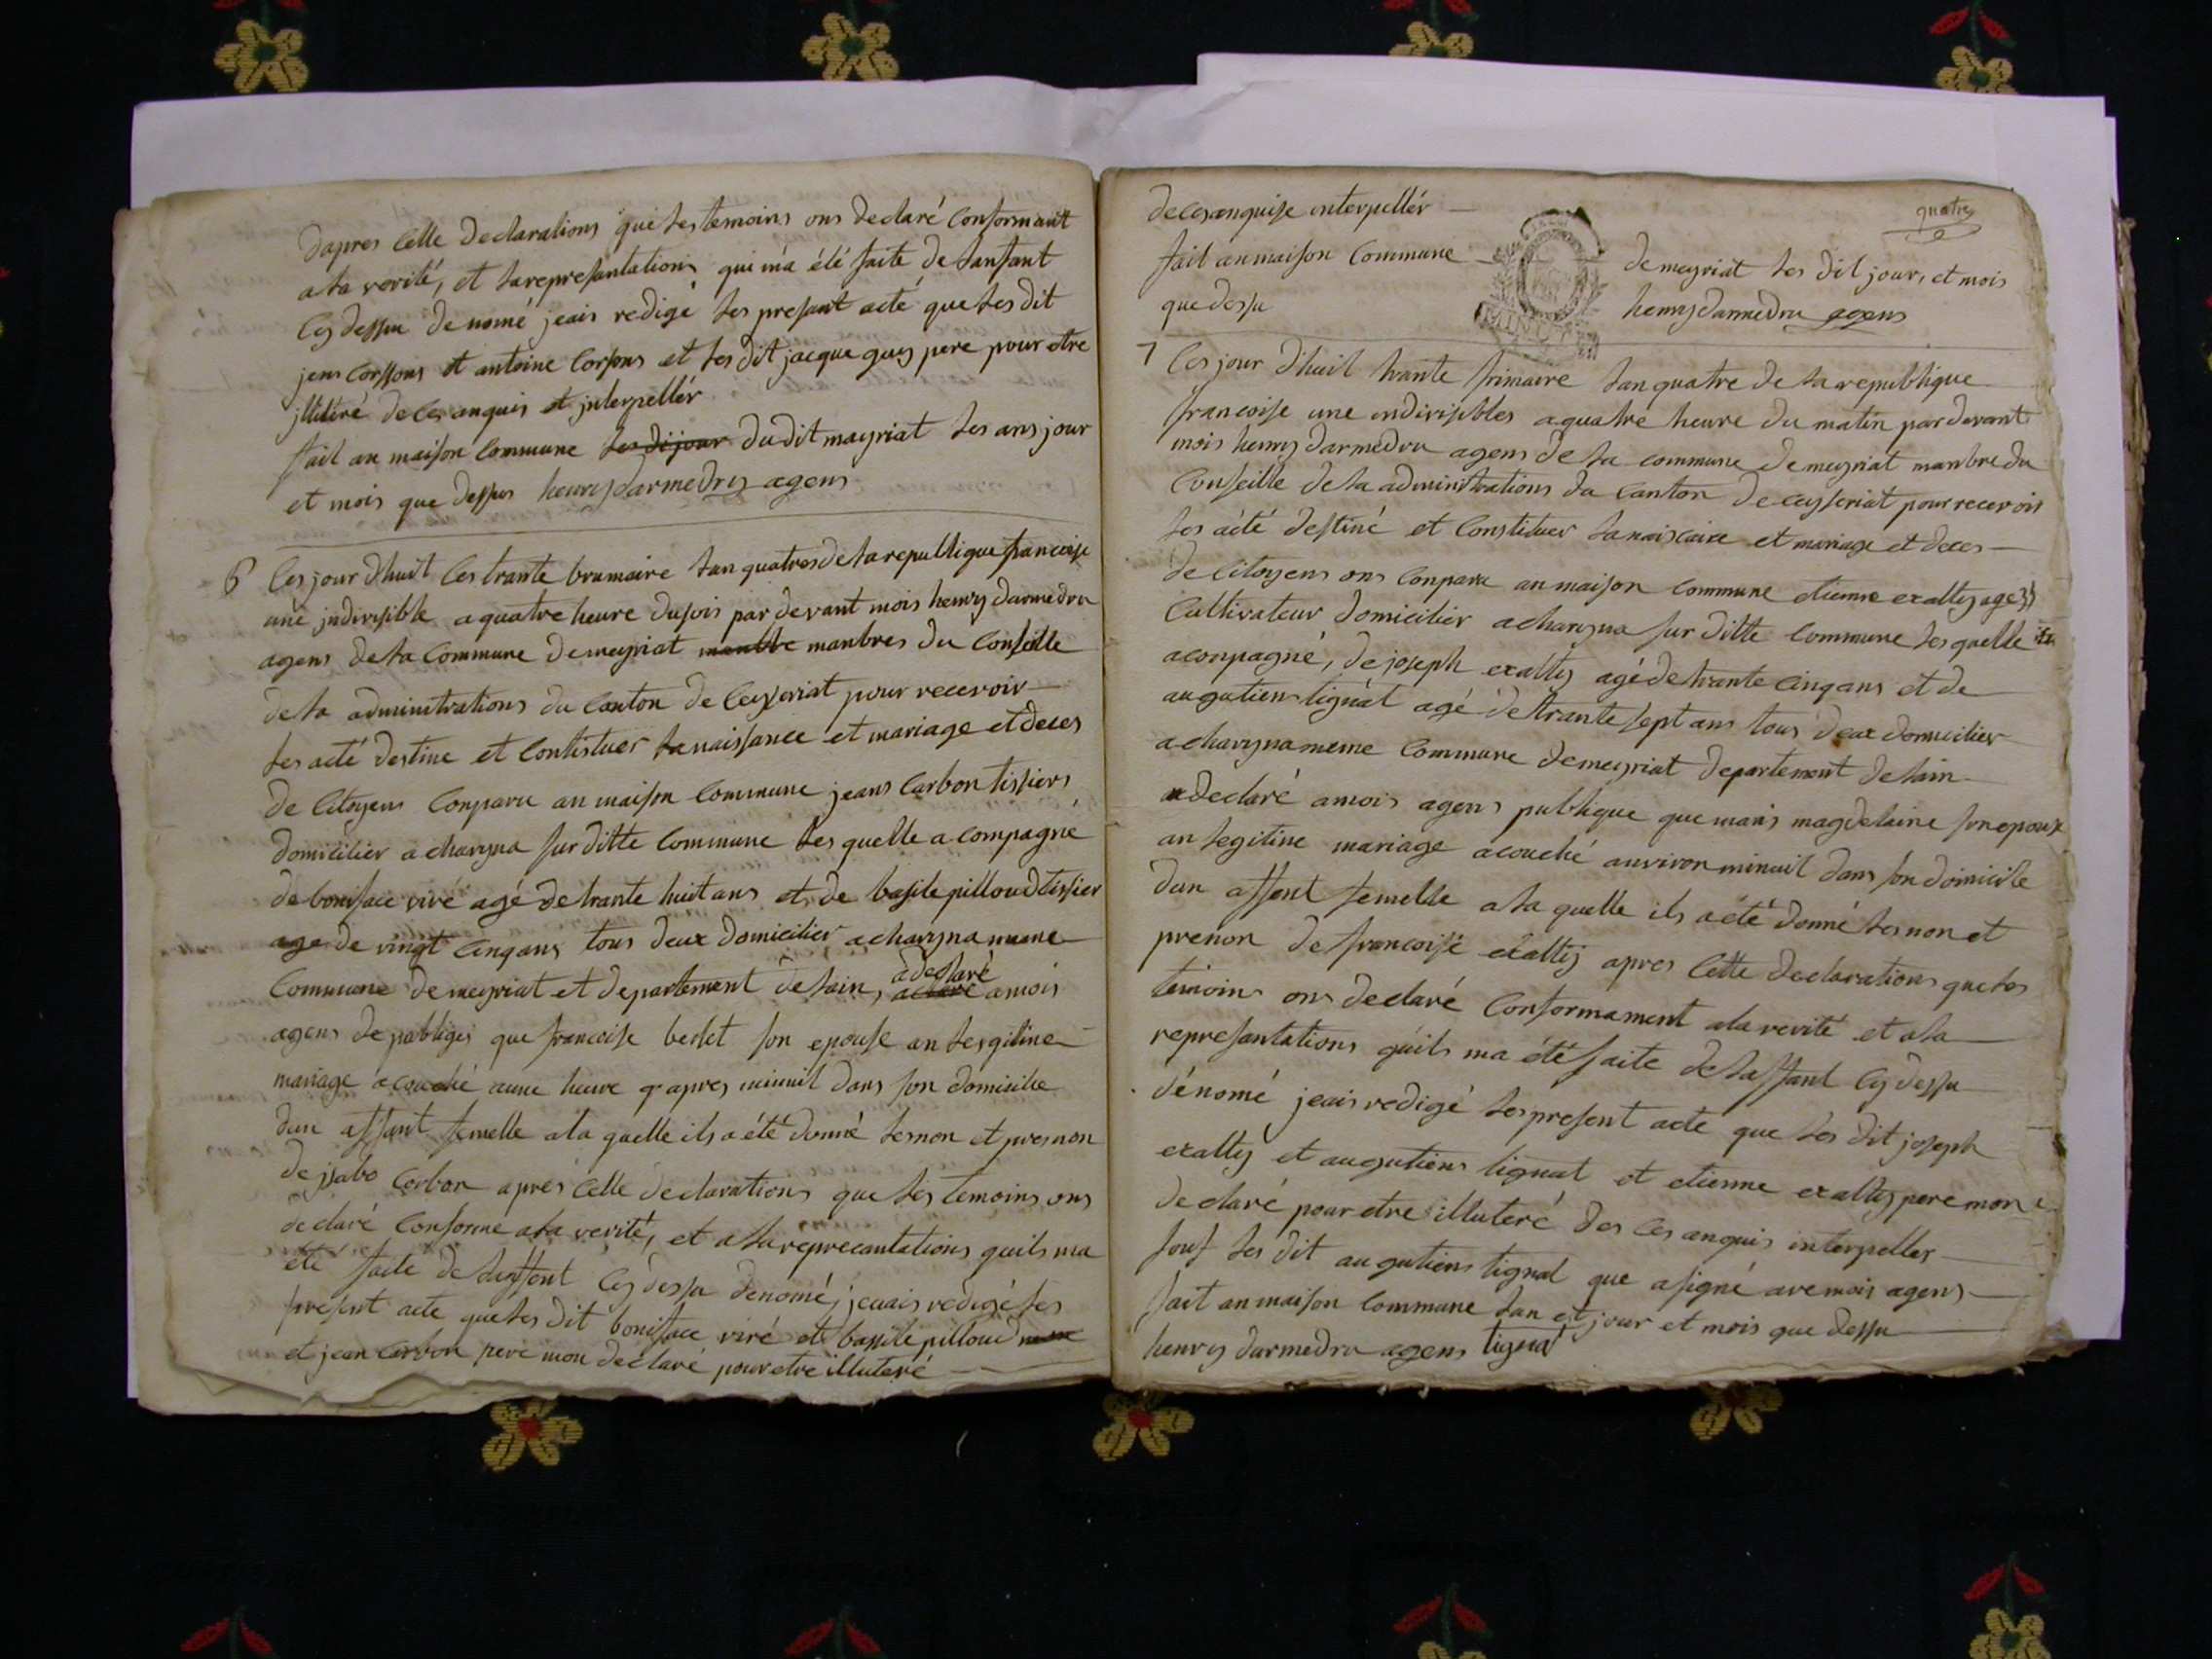 dapres Cette declarations que les temoins ons declaré Conformant
a la verité, et la represantations qui m'a été faite de lanfant
Cy dessu denomé jeais redigé les presant acté que les dit
jean Corssons et antoine Corsons et les dit jacque guy pere pour etre
jlliteré de Ces anquis et jnterpellér
fait an maison Commune les dijour dudit mayriat les ans jour
et mois que dessus henry darmedry agens
6 Ces jour d'huit Ces trante brumaire lan quatres de la republique francoise
une jndivisible a quatre heure dusois par devant mois henry darmedru
agens de la Commune de meyriat manbres du Conseille
de la administrations du Canton de Ceyseriat pour recevoir
les acté destine et Contistuer la naissance et mariage et deces
de Citoyens Conparu an maison Commune jeans Carbon tissiers
domicilier a charyna sur ditte Commune les quelle a compagné
de boniface viré agé de trante huit ans et de basile pilloud tissier
age de vingt Cinq ans tous deux domicilier a charyna meme
Commune de meyriat et departement de lain, a declaré amois
agens de publiges que francoise berlet son epouse an lesgitine
mariage acouché aune heure apres minuit dans son domicile
dun assant femelle a la quelle ils a été donné les non et presnon
de jsabo Corbon aprés Cette declarations que les temoins ons
declaré Conforme a la verité, et a la reprecantations quils ma
été faite de lassent Cy dessu denomé, jeuais redigé les
present acte que les dit boniface viré et bassile pilloud
et jean Corbon pere mon declaré pour etre illuteré
de Ces anquise interpellér
quatre
fait an maison Commune de meyriat les dit jour, et mois
que dessu henry darmedru agens
7 Ces jour d'huit trante frimaire lan quatre de la republique
francoise une indivisibles a quatre heure du matin par devant
mois henry darmedru agens de la commune de meyriat manbre du
Conseille de la administrations du Canton de Ceyseriat pour recevois
les acté destiné et Constituer la naiscaice et mariage et deces
de Citoyens ons Conparu an maison Commune etienne exaltey age 33
Cultivateur domicilier a charyna sur ditte Commune les quelle
aconpagné, de joseph exaltey agé de trante Cinq ans et de
augutiens lignat agé de trante sept ans tous deux domicilier
a charyna meme Commune de meyriat departement de lain
a declaré amois agens publique que maris magdelaine son epouse
an legitine mariage acouché anviron minuit dans son domicile
dun assent femelle a la quelle ils a été donné les non et
prenon de francoise exaltey apres Cette declarations que les
temoins ons declaré Conformament a la verité et a la
represantations quils ma été faite de lassant Cy dessu
dénomé jeais redigé les present acte que les dit joseph
exaltey et augutiens lignat et etienne exaltey pere mon
declaré pour etre illuteré des Ces anquis interpeller
souf les dit augutiens lignat que a signé ave mois agens
fait an maison Commune lan et jour et mois que dessu
henry darmedru agens lignat